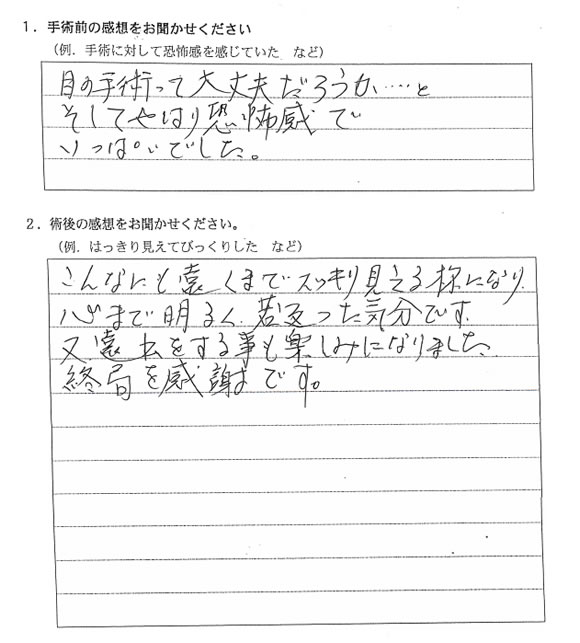 1．手術前の感想をお聞かせください
（例．手術に対して恐怖感を感じていた　など）
目の手術って大丈夫だろうか……と
そしてやはり恐怖感で
いっぱいでした。
2．術後の感想をお聞かせください。
（例．はっきり見えてびっくりした　など）
こんなにも遠くまでスッキリ見える様になり
心まで明るく、若返った気分です。
又遠出をする事も楽しみになりました
を感謝です。